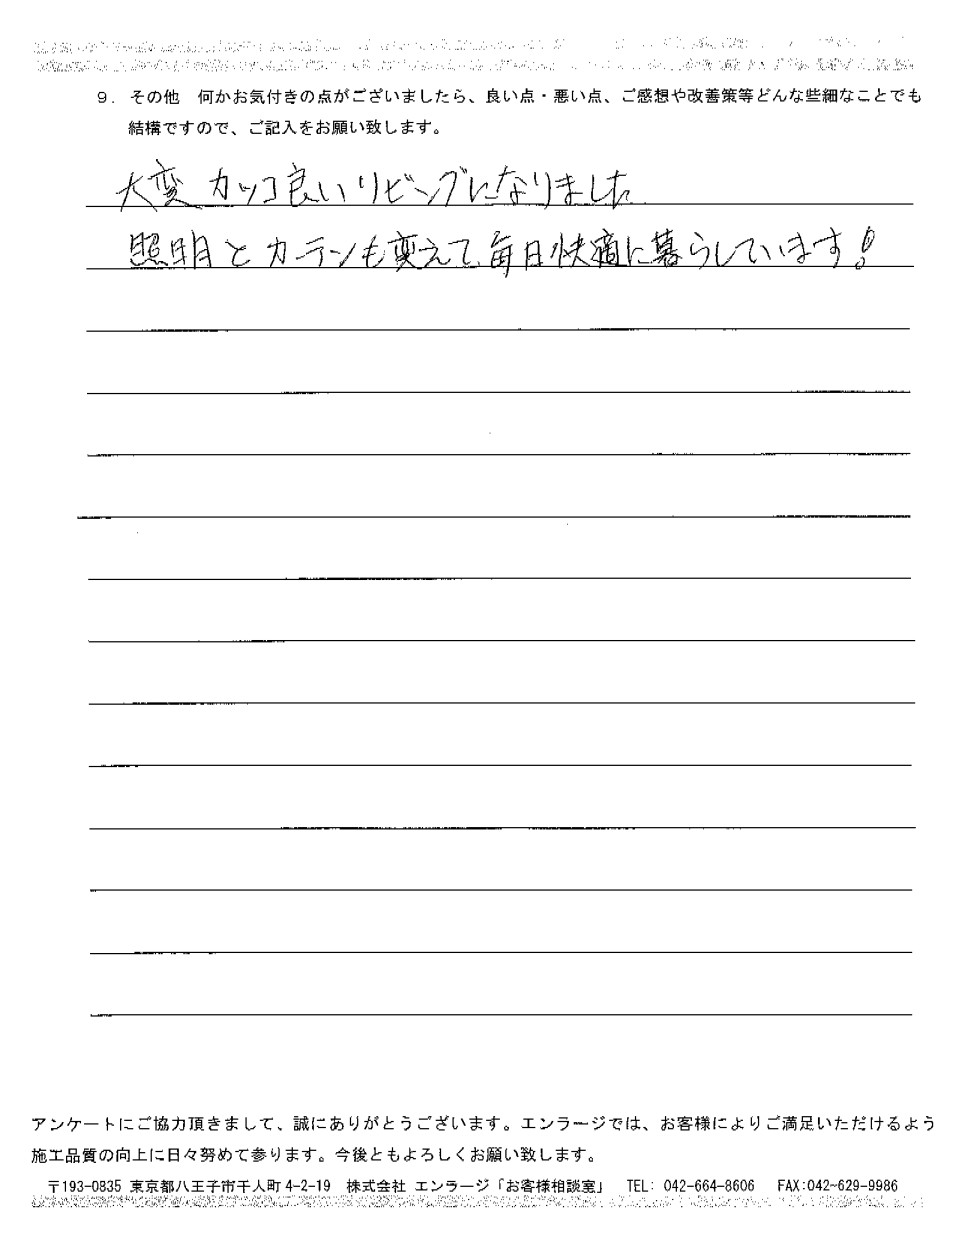 9. その他　何かお気付きの点がございましたら、良い点・悪い点、ご感想や改善策等どんな些細なことでも
結構ですので、ご記入をお願い致します。
大変カッコ良いリビングになりました
照明とカーテンも変えて、毎日快適に暮らしています!
アンケートにご協力頂きまして、誠にありがとうございます。エンラージでは、お客様によりご満足いただけるよう
施工品質の向上に日々努めて参ります。今後ともよろしくお願い致します。
〒193-0835 東京都八王子市千人町4-2-19　株式会社 エンラージ「お客様相談室」　TEL: 042-664-8606　FAX:042-629-9986